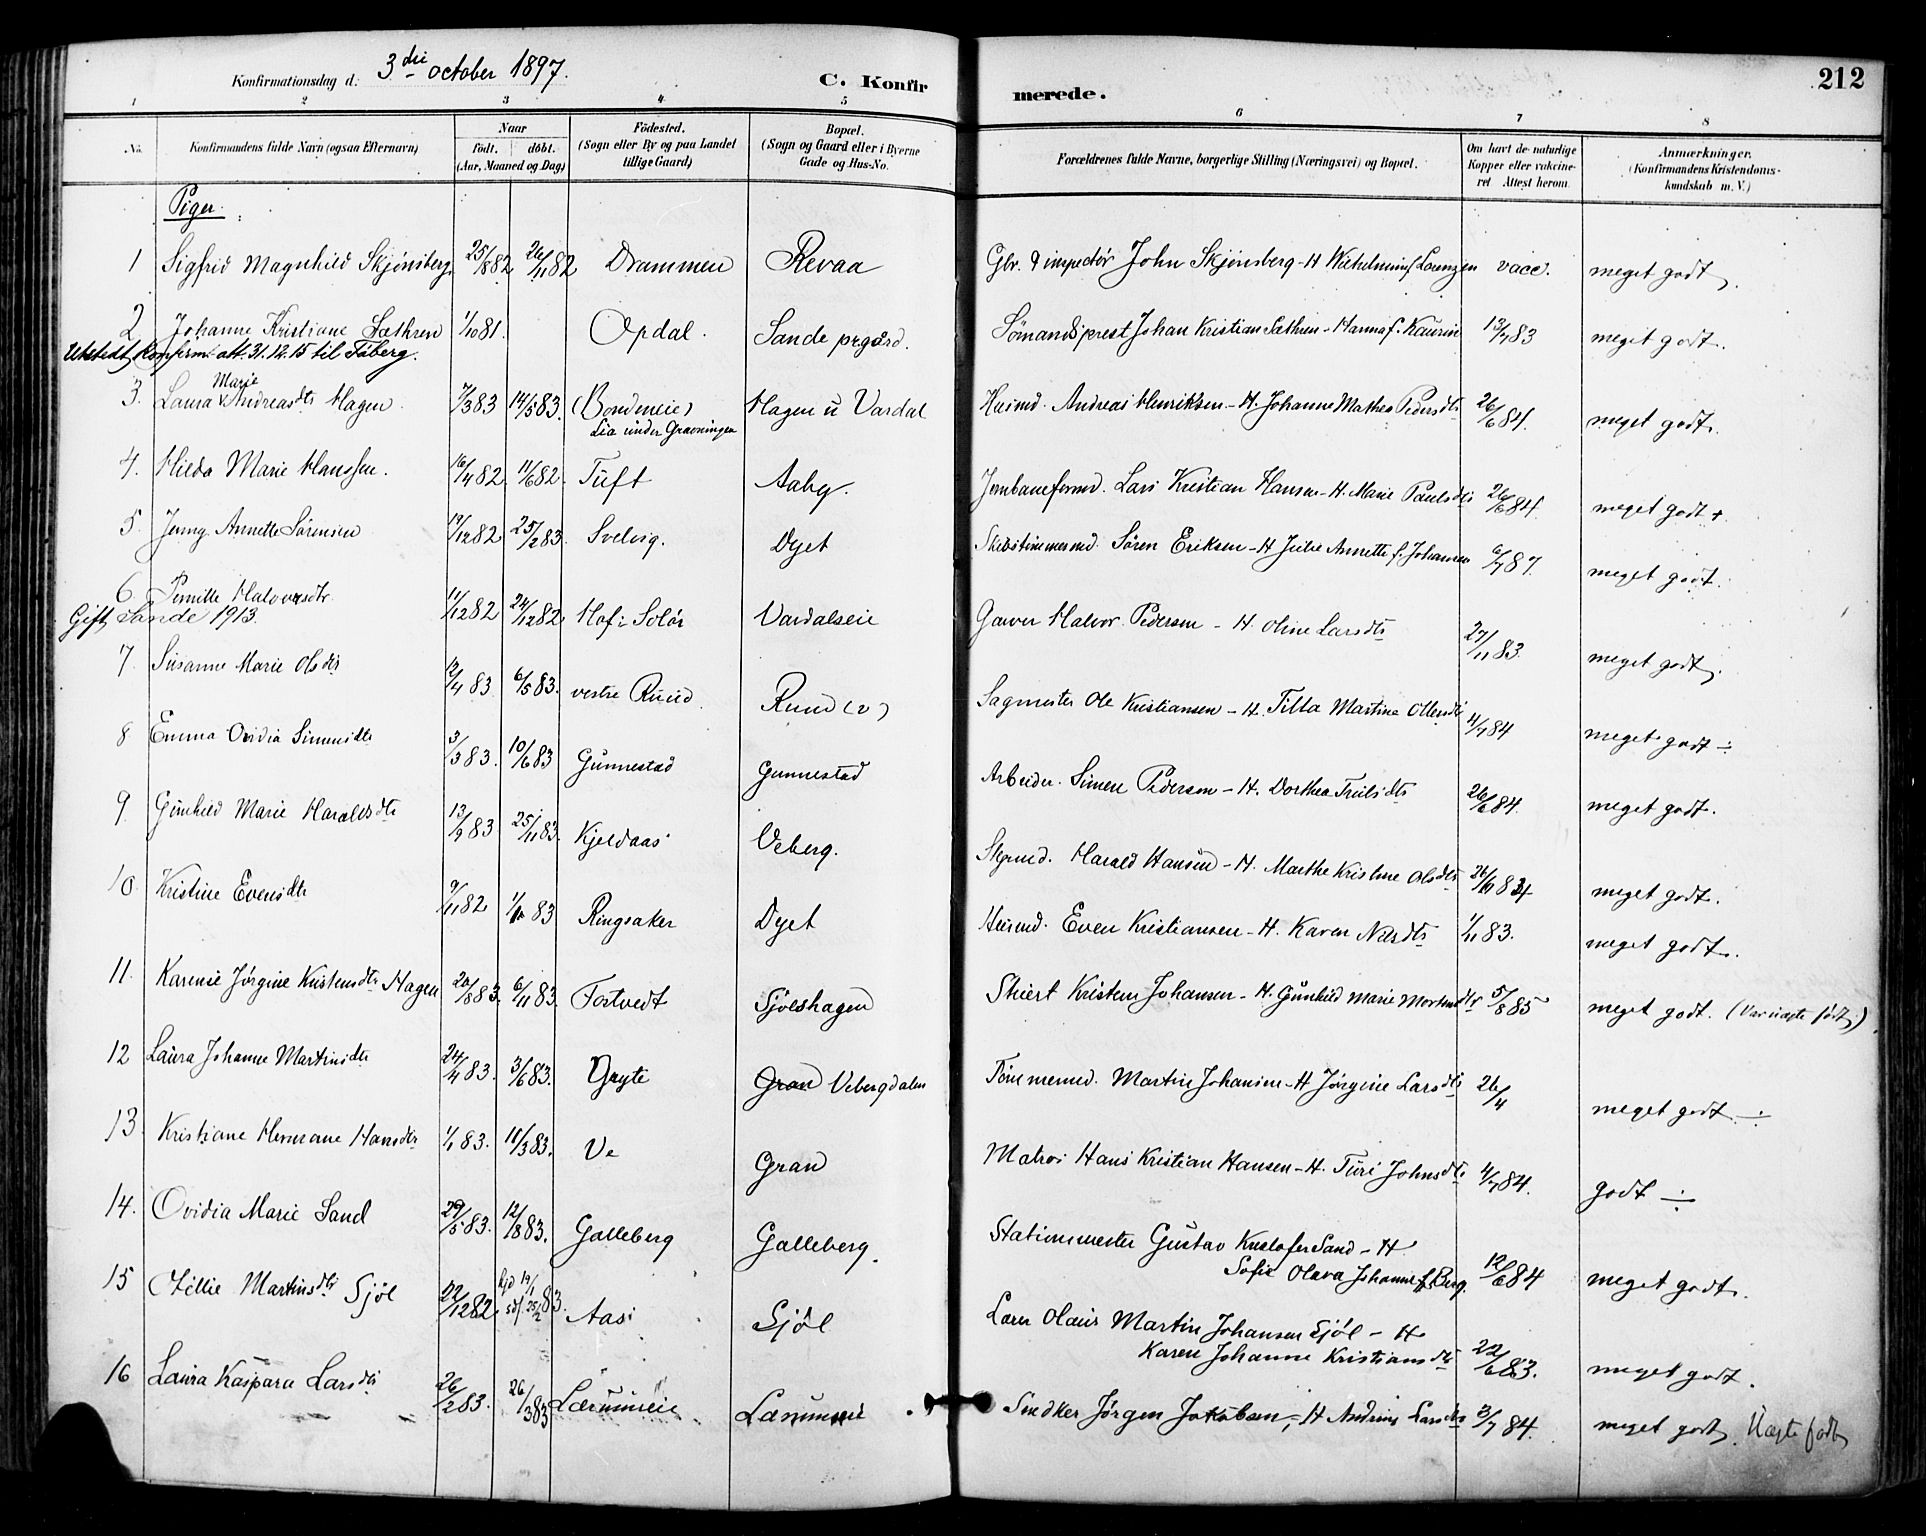 Konfirmationsdag d. 3die October 1897.
C. Konfirmerede.
212
1 2 3 4 5 6 7 8
No.
Konfirmandens fulde Navn (ogsaa Efternavn)
Naar
födt. döbt.
(Aar, Maaned og Dag)
Födested.
(Sogn eller By og paa Landet tillige Gaard)
Bopæl.
(Sogn og Gaard eller i Byerne Gade og Hus-No.
Forældrenes fulde Navne, borgerlige Stilling (Næringsvei) og Bopæl.
Om havt de naturlige Kopper eller vakcineret Attest herom.
Anmærkninger.
(Konfirmandens Kristendomskundskab m. V.)
Piger.
1 Sigfrid Magnhild Skjönsberg 25/8 82 26/11 82 Drammen Revaa John Skjönsberg - H. Lorenzen vacc. meget godt.
2 Johanne Kristiane Sæthren 1/10 81. Opdal. Sande prgård. Sömandsprest Johan Kristian Sæthren - Hanna f. Kaurin 13/7 83 meget godt.
Utstedt konfirm. att. 31.12.15 til Fåberg.
3. Laura Marie Andreasdtr Hagen. 7/3 83 14/5 83. (Bondeneie) Hagen u Vardal Husmd. Andreas Henriksen - H. Johanne Mathea Pedersdtr 26/6 84. meget godt.
Lia under Gravningen
4. Hilda Marie Hanssen. 16/4 82 11/6 82. Tuft Aaby. Jernbaneformd. Lars Kristian Hansen - H. Marie Paulsdtr 26/6 84. meget godt +
5. Jenny Annette Sörensen 19/12 82 25/2 83. Svelvig. Dyet Skibstömmermd. Sören Eriksen - H Julie Annette f. Johansen 6/7 87. meget godt.
6 Pernille Halvorsdtr. 11/12 82 24/12 82 Hof i Solör Vardalseie Garver Halvor Pedersen - H. Oline Larsdtr 27/11 83. meget godt.
Gift Sande 1913.
7. Susanne Marie Olsdtr 12/4 83 6/5 83. vestre Ruud Ruud (v) Sagmester Ole Kristiansen - H. Tilla Martine Ottersdtr 4/7 84 meget godt ÷
8 Emma Ovidia Simensdtr 3/3 83. 10/6 83 Gunnestad Gunnestad Arbeider. Simen Pedersen - H. Dorthea Trulsdtr 26/6 84. meget godt.
9. Gunhild Marie Haraldsdtr 13/9 83 25/11 83. Kjeldaas Veberg. Harald Hansen - H. Marthe Kristine Olsdtr meget godt.
10. Kristine Evensdtr 9/11 82 83 Ringsaker Dyet Husmd. Even Kristiansen - H. Karen Nilsdtr 1/11 83. meget godt.
11. Karense Jörgine Kristensdtr Hagen 20/8 83. 6/11 83. Tortvedt Sjöeshagen Kristen Johansen - H. Gunhild Marie Mortensdtr 5/8 85 meget godt. (Var uægte födt.)
12 Laura Johanne Martinsdtr 24/4 83. 3/6 83. Gryte Gran Vebergdalen Tömmermd. Martin Johansen - H Jörgine Larsdtr 26/4 meget godt ÷
13. Kristiane Hermane Hansdtr 1/1 83. 11/3 83. Ve Gran Matros Hans Kristian Hansen - H. Turi Johnsdtr 4/7 84. godt ÷
14. Ovidia Marie Sand 29/5 83. 12/8 83. Galleberg Galleberg. Stationsmester Gustav Kristofer Sand - H.
Sofie Olava Johanne f. Berg. 12/6 84 meget godt.
15 Tillie Martinsdtr Sjöl 22/12 82. hjd 19/1 sdf. 25/2 83. Aas Sjöl Olaus Martin Johansen Sjöl - H
Karen Johanne Kristiansdtr 22/6 83. meget godt.
16 Laura Kaspara Larsdtr 26/2 83. 26/3 83 Lærumeie Lærumeie. Snedker Jörgen Jakobsen, - H Larsdtr 3/7 84. meget godt. Uægte födt